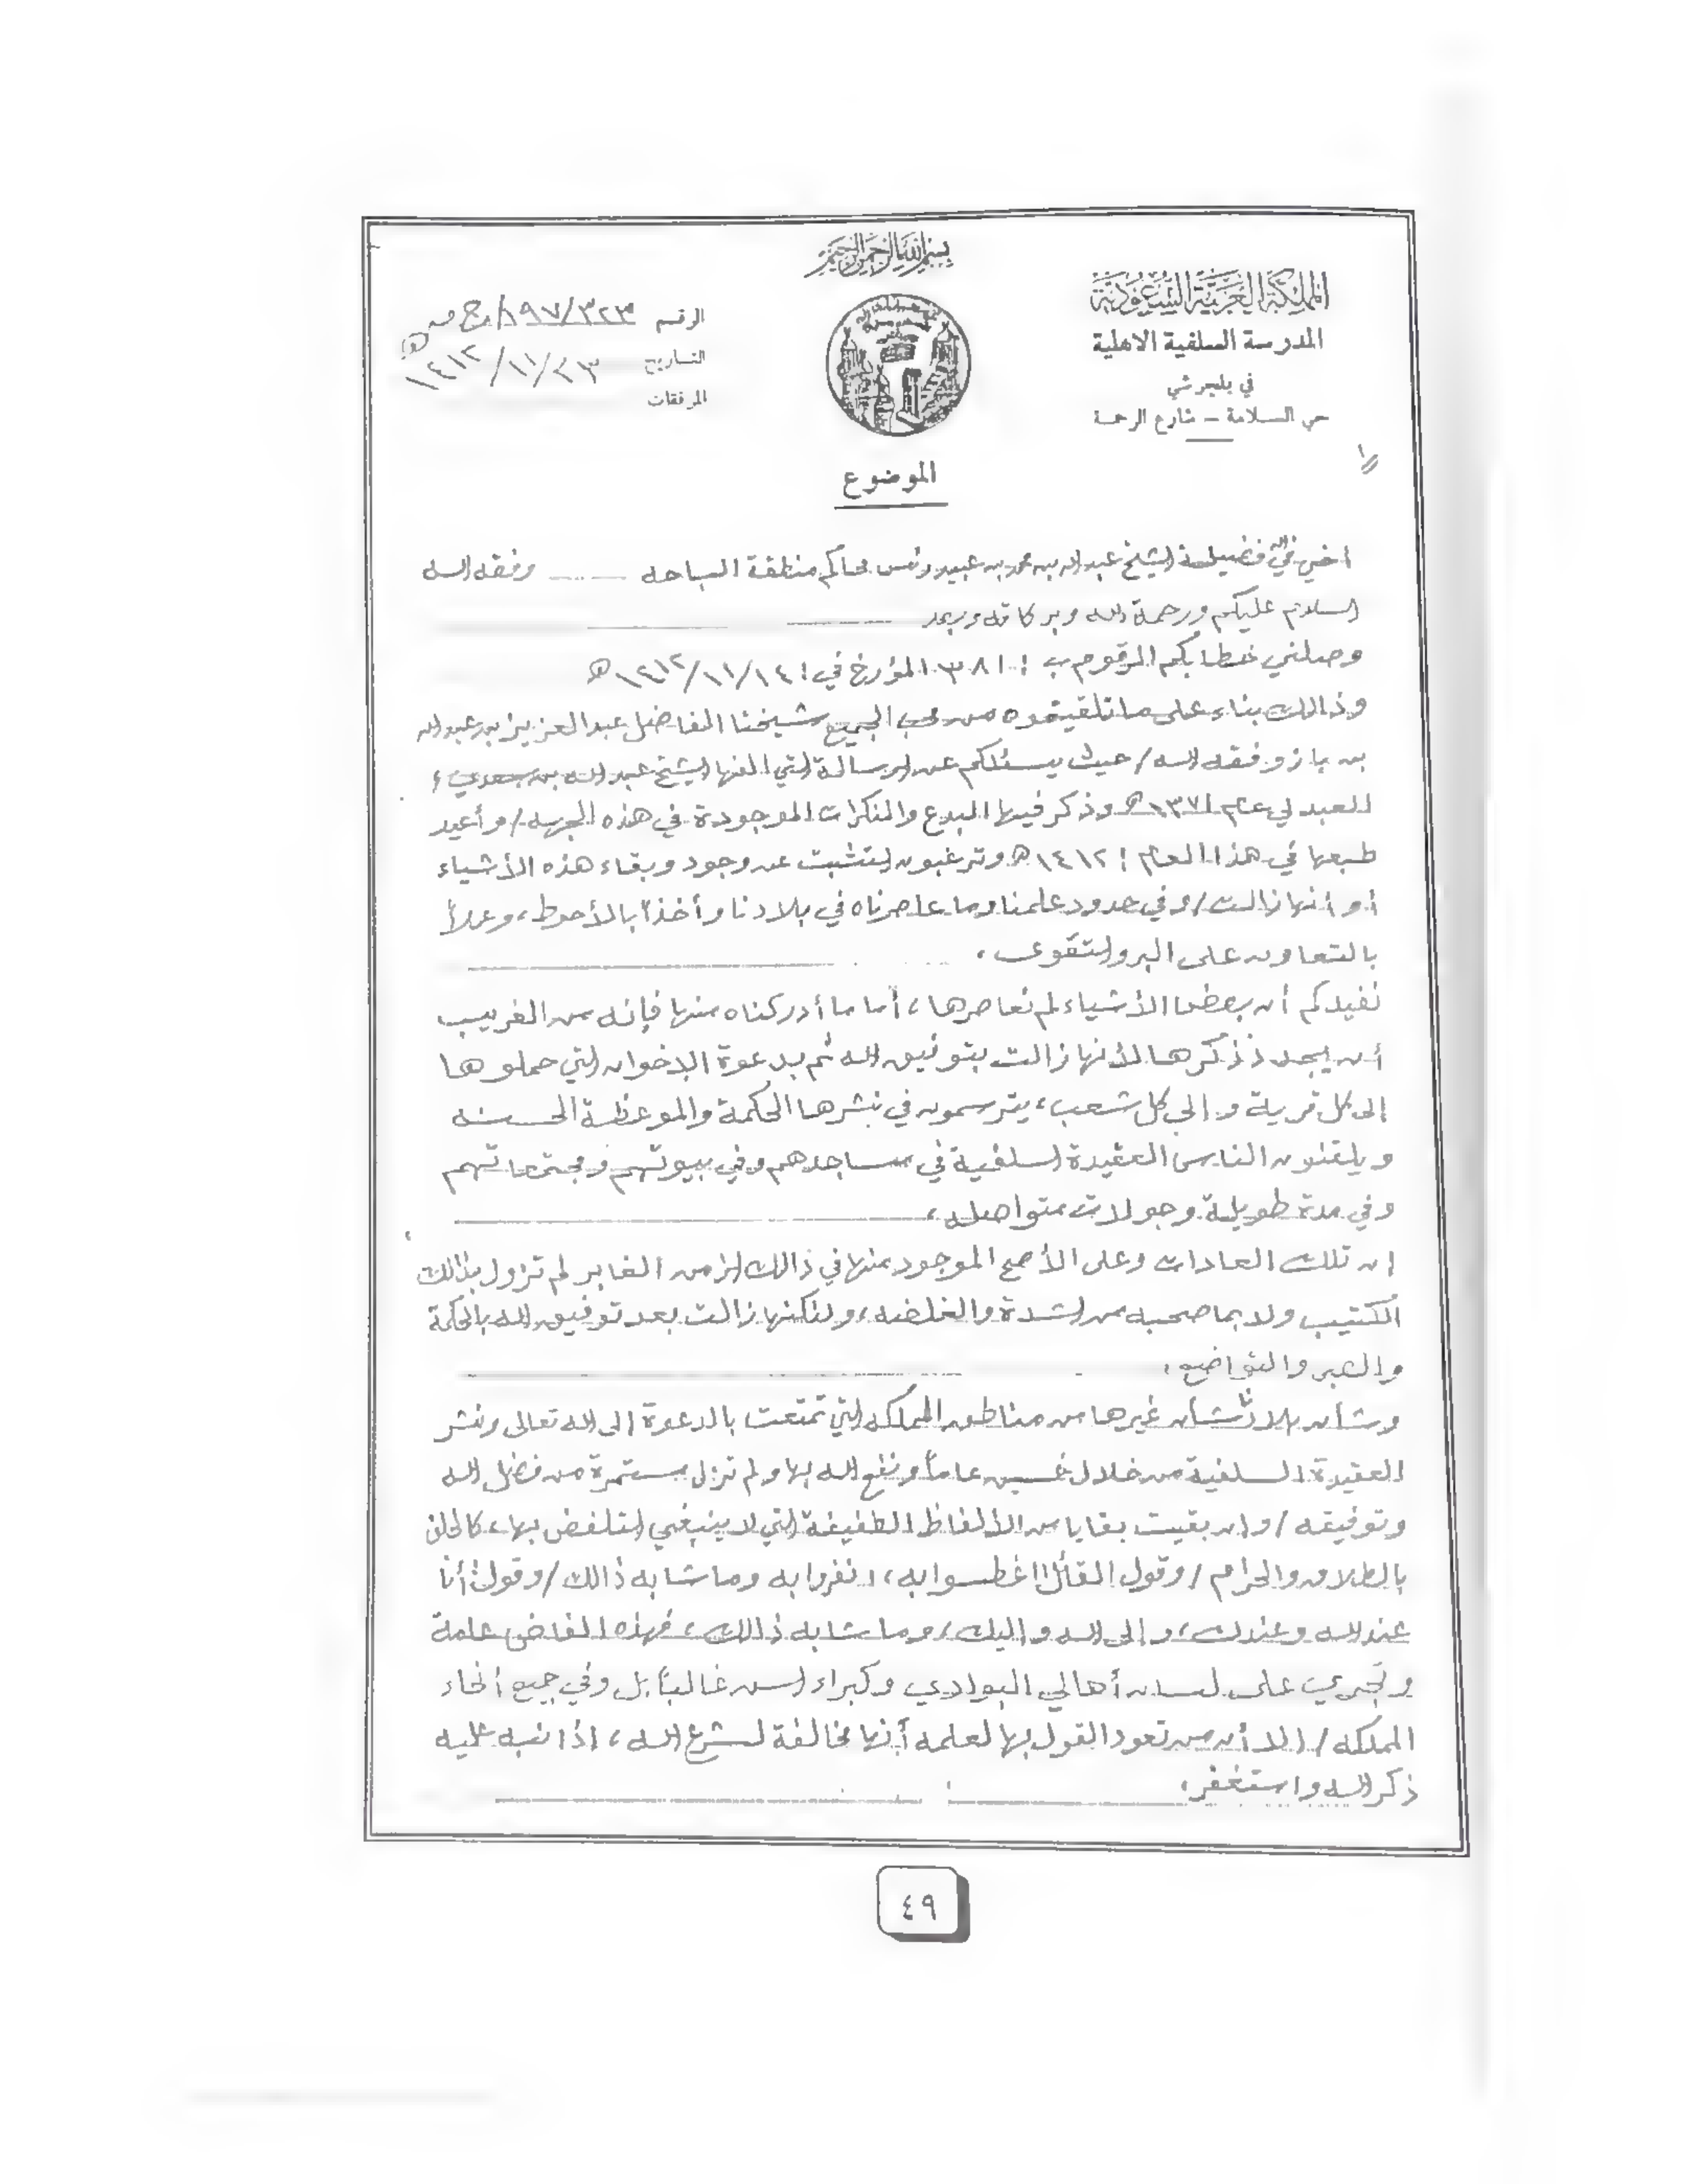 بسم الله الرحمن الرحيم
المملكة العربية السعودية
المدرسة السلفية الاهلية
في بلجرشي
حي السلامة – شارع الرحمة
الرقم ١٩٧/٣٢٣
التاريخ ١٤١٢/١١/٢٣ هـ
المرفقات
الموضوع
اخي في الله فضيلة الشيخ عبدالله بن محمد بن عبيد رئيس محاكم منطقة الباحه ــ وفقه الله
السلام عليكم ورحمة الله وبركاته وبعد
وصلني خطابكم المرقوم ب : ١٣٨١ المؤرخ في : ١٤١٢/١١/١٤ هـ
وذالك بناء على ما تلقيتموه من محب الجميع شيخنا الفاضل عبد العزيز بن عبدالله
بن باز وفقه الله / حيث يسئلكم عن الرسالة التي الفها الشيخ عبدالله بن سعدي ،
العبدلي عام ١٣٧١هـ وذكر فيها البدع والمنكرات الموجودة في هذه الجهه / وأعيد
طبعها في هذا العام : ١٤١٢هـ وترغبون لتثبت عن وجود وبقاء هذه الأشياء
أو أنها زالت / وفي حدود علمنا وما عاصرناه في بلادنا وأخذاً بالأحوط ، وعملاً
بالتعاون على البر والتقوى ،
نفيدكم أن بعض الأشياء لم نعاصرها ، أما ما أدركناه منها فإنه من الغريب
أن يجدد ذكرها لأنها زالت بتوفيق الله ثم بدعوة الإخوان التي حملوها
إلى كل قرية وإلى كل شعب ، يترسمون في نشرها الحكمة والموعظة الحسنه
ويلقنون الناس العقيدة السلفية في مساجدهم وفي بيوتهم ومجتمعاتهم
وفي مدة طويلة وجولات متواصله ،
إن تلك العادات وعلى الأصح الموجود منها في ذالك الزمن الغابر لم تزول بذالك
الكتيب ولا بما صحبه من الشدة والغلضه ، ولكنها زالت بعد توفيق الله بالحكمة
والصبر والتواضع ،
وشأن بلادنا شأن غيرها من مناطق المملكه التي تمتعت بالدعوة إلى الله تعالى ونشر
العقيدة السلفية من خلال خمسين عاماً ونفع الله بها ولم تزل مستمرة من فضل الله
وتوفيقه / وان بقيت بقايا من الألفاظ الطفيفة التي لا ينبغي التلفض بها ، كالحلف
بالطلاق والحرام / وقول القائل اغطسوا به ، انفروا به وما شابه ذالك / وقول : أنا
عند الله وعندك ، وإلى الله واليك ، وما شابه ذالك ، فهذه الفاض عامة
وتجري على لسان أهالي البوادي وكبراء السن غالباً بل وفي جميع أنحاء
المملكه / إلا أن من تعود القول بها لعلمه أنها مخالفة لشرع الله ، اذا نبه عليه
ذكر الله واستغفر ،
٤٩